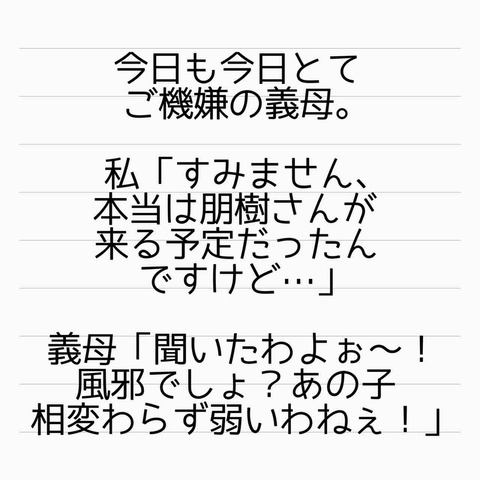 今日も今日とて
ご機嫌の義母。
私「すみません、
本当は朋樹さんが
来る予定だったん
ですけど…」
義母「聞いたわよぉ〜！
風邪でしょ？あの子
相変わらず弱いわねぇ！」